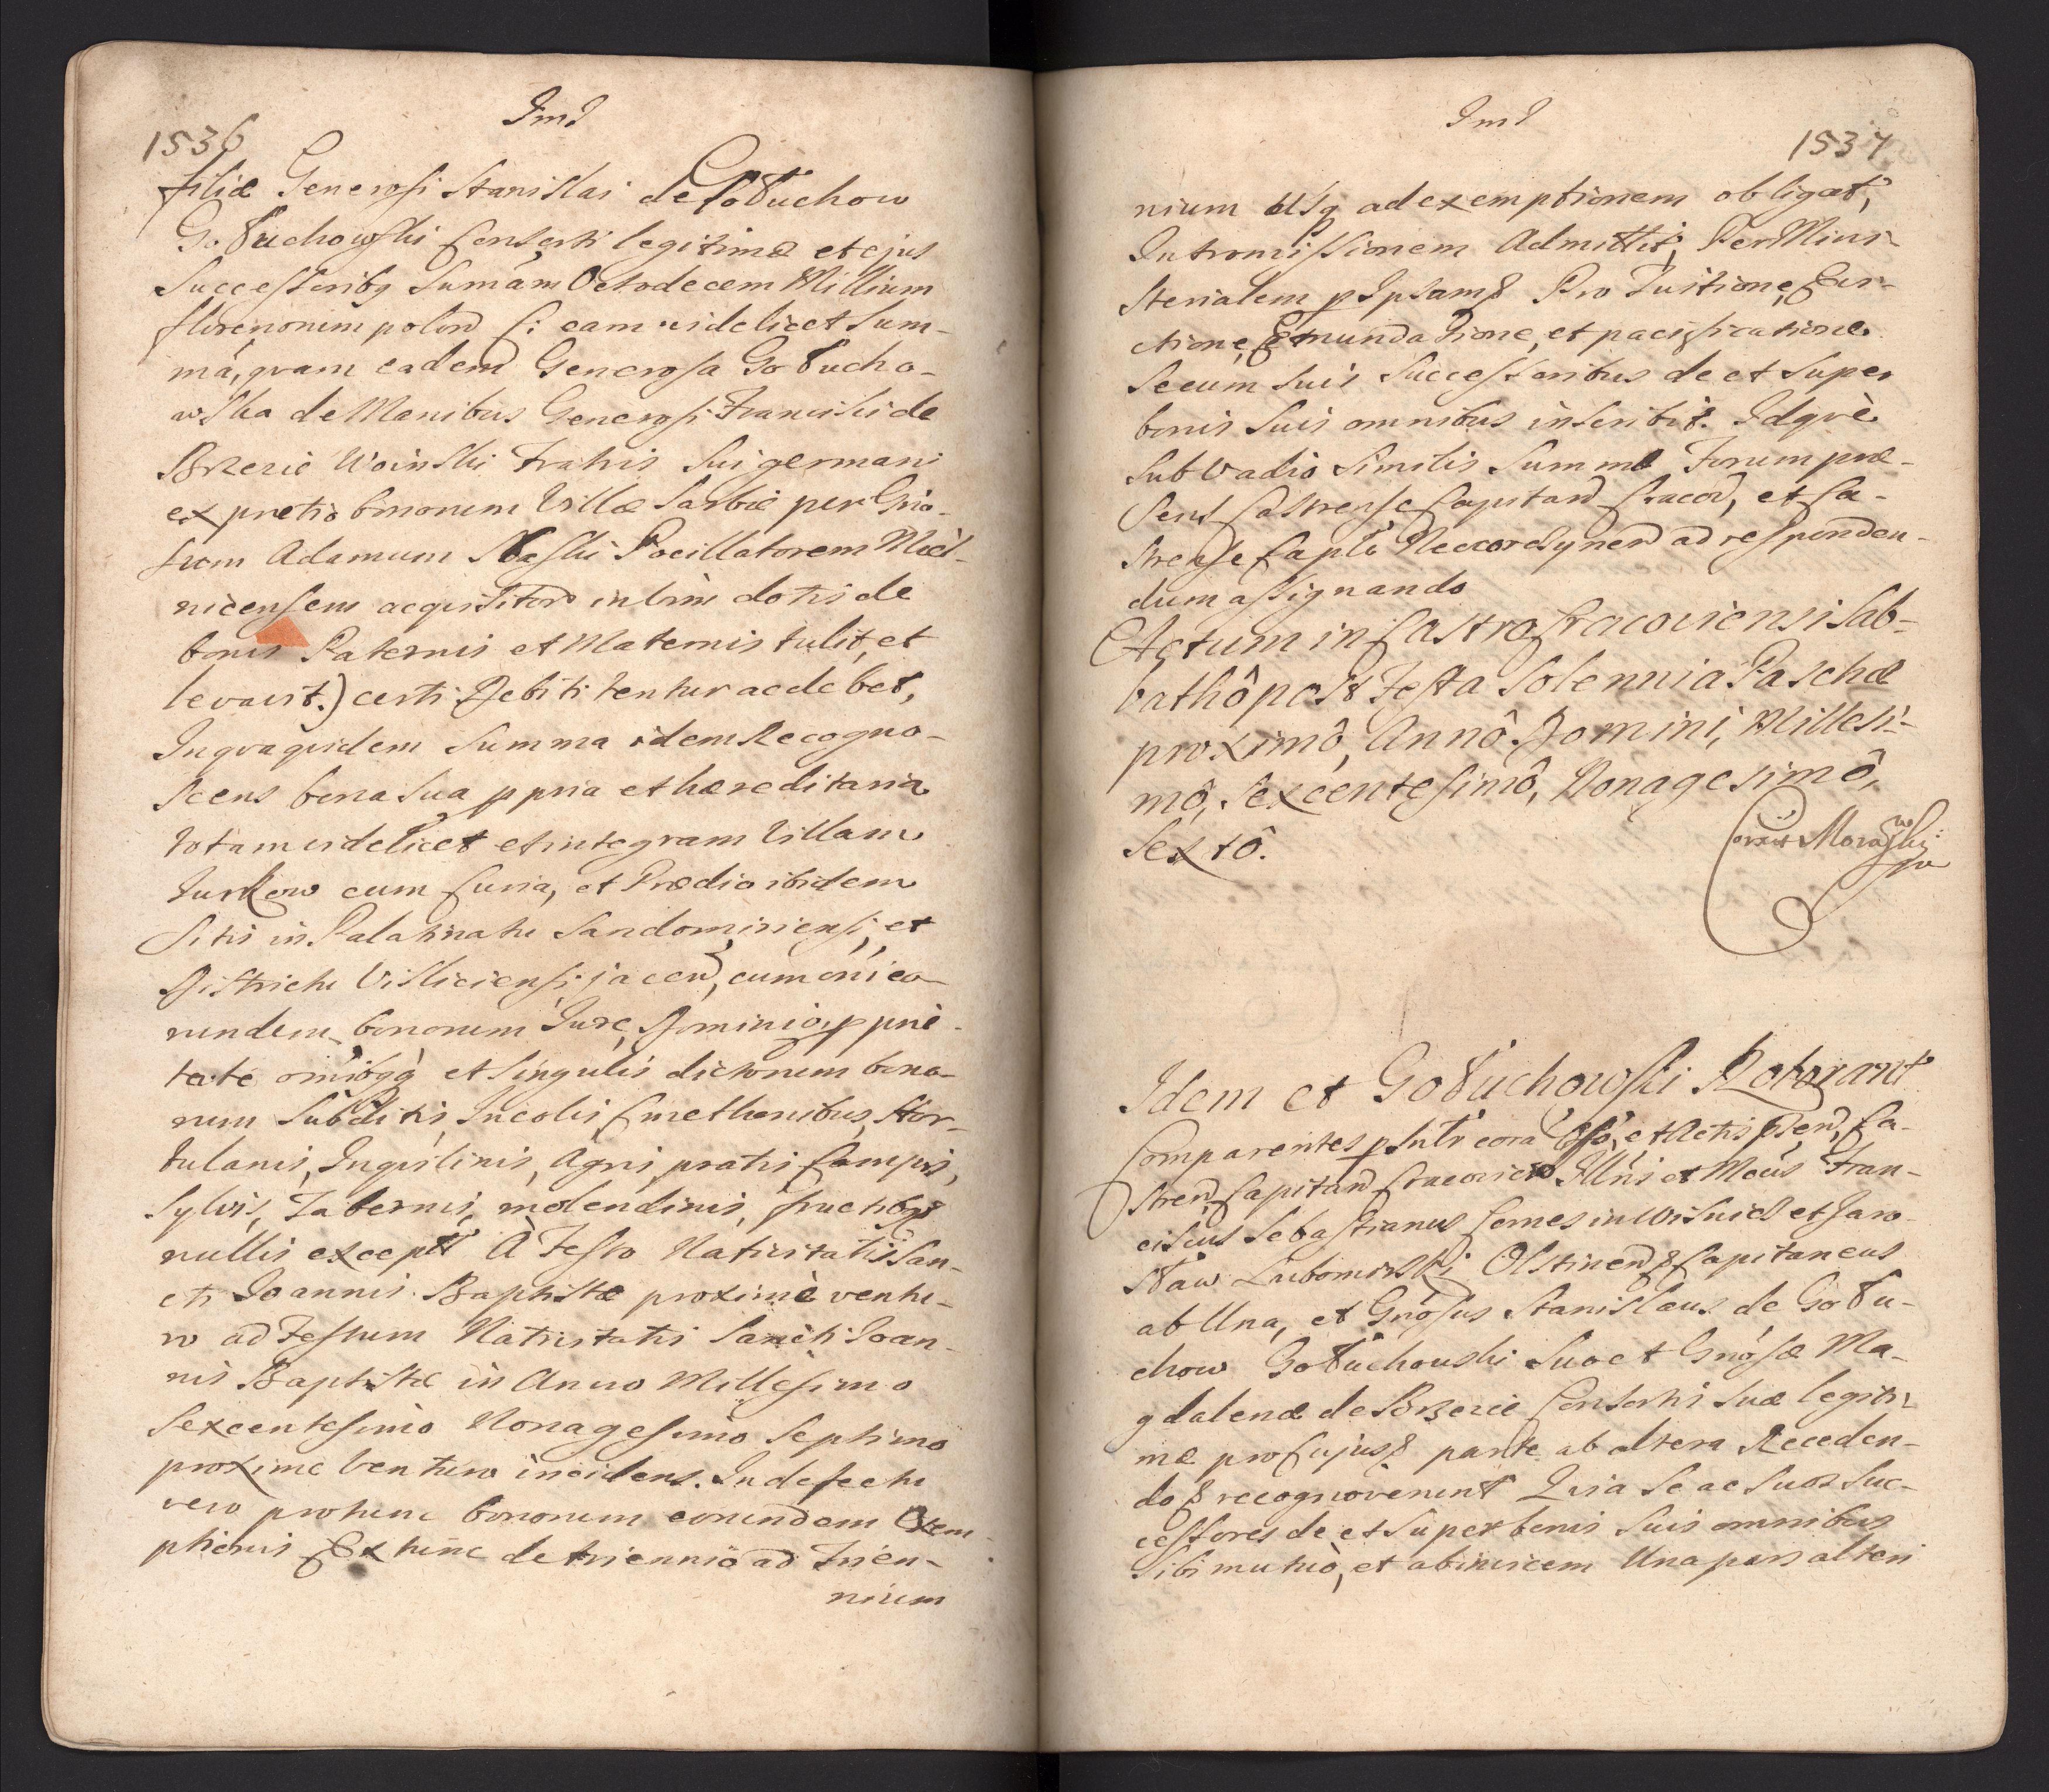 1536
Ind
filiæ Generosi Stanislai de Gołuchow
Gołuchowski Consorti legitimæ et ejus
Successoribq Sumam Octodecem Millium
florenorum polond (: eam videlicet Sum-
má, qvam eadem Generosa Gołucho-
wska de Manibus Generosi Francisci de
Brzezie Woinski Fratris Sui germani
ex pretio bonorum Villæ Sarbiæ per Gno-
sum Adamum Pocillatorem
nicensem acqvisitord in vim dotis de
bonis Paternis et Maternis tulit, et
levavit.) certi Debiti tentur ac debet,
In qva qvidem Summa idem Recogno-
scens bona Sua ppria et hæreditaria
totam videlicet et integram Villam
Jurkow cum Curia, et Prædio ibidem
Sitis in Palatinatu Sandomiriensi, et
Districtu Visliciensi jacend, cum oni eo-
rundem bonorum Jure, Dominio, pprie-
tate omibqq et Singulis dictorum bono-
rum Subditis Incolis, Cmethonibus, Hor-
tulanis, Inqvilinis, Agris pratis Campis,
Sylvis, Tabernis, molendinis, fructibq
nullis except A Festo Nativitatis San-
cti Joannis Baptistæ proximè ventu-
ro ad Festum Nativitatis Sancti Joan-
nis Baptistæ in Anno Millesimo
Sexcentesimo Nonagesimo Septimo
proxime venturo incidens. In defectu
vero protunc bonorum eorundem Exem-
ptionis Ex tunc de triennio ad Trien-
nium
Ind
1537
nium usq ad exemptionem obligat,
Intromissionem Admittit, Per Mini-
sterialem p Ipsam Pro Tuitione, Evi-
ctione, Emundatione, et pacificatione
Se cum Suis Successoribus de et Super
bonis Suis omnibus inscribit. Idqvè
Sub vadio Similis Summæ Forum præ-
Sens Castrense Capitand Cracod, et Ca-
strense Captu ad responden-
dum assignando
Actum in Castro Cracoviensi Sab-
bathô post Festa Solennia Paschæ
proximô, Annô Domini, Millesi-
mô, Sexcentesimô, Nonagesimô,
Sextô.
Idem et Gołuchowski Roborant
Comparentes psnltr cora Offo, et Actis psend, Ca-
strend Capitand Cracovien Illris et Mcus Fran-
ciscus Sebastianus Comes in Wisnicz et Jaro-
sław Lubomirski Olstinend Capitaneus
ab Una, et Gnosus Stanislaus de Gołu-
chow Gołuchowski Suo et Gnosæ Ma-
gdalenæ de Brzezie Consortis Suæ legiti-
mæ pro Cujus parte ab altera Receden-
do recognoverunt Qvia Se ac Suos Suc-
cessores de et Super bonis Suis omnibus
Sibi mutuò, et abinvicem Una pars alteri